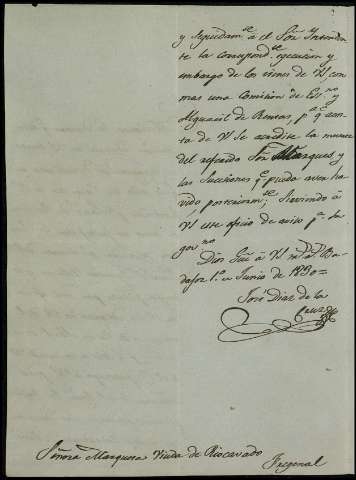 y seguidam.te á el Sõr Intenden
te la correspond.te egecucion y
embargo de los vienes de VS con
mas una Comision de Es.no y
Alguacil de Rentas, p.a q.e
ta de VS se acredite la muerte
del referido Sõr Marques, y
las Succiones q.e pueda aver ha
vido posteriorm.te; Sirviendo á
VS este oficio de aviso p.a su
gov.no
Dios Gũe á VS m.s a.s Ba
dajoz 1.o en Junio de 1830=
José Diaz de la
Cruz
Señora Marquesa Viuda de Riocavado
Fregenal